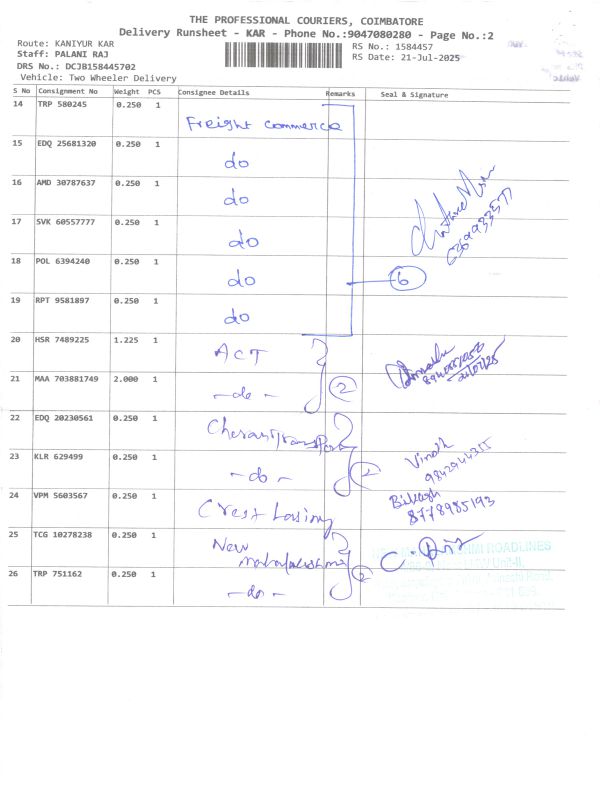 THE PROFESSIONAL COURIERS, COIMBATORE
Delivery Runsheet - KAR - Phone No.:9047080280 - Page No.:2
Route: KANIYUR KAR
Staff: PALANI RAJ
DRS No.: DCJB158445702
Vehicle: Two Wheeler Delivery
RS No.: 1584457
RS Date: 21-Jul-2025
S No Consignment No Weight PCS Consignee Details Remarks Seal & Signature
14 TRP 580245 0.250 1 Freight commerce
15 EDQ 25681320 0.250 1 do
16 AMD 30787637 0.250 1 do
17 SVK 60557777 0.250 1 do
18 POL 6394240 0.250 1 do 6
19 RPT 9581897 0.250 1 do
20 HSR 7489225 1.225 1 ACT
21 MAA 703881749 2.000 1 -do- 2
22 EDQ 20230561 0.250 1 Cheran Transport
23 KLR 629499 0.250 1 -do- Vinoth
9842944355
24 VPM 5603567 0.250 1 Bikash
8778985193
25 TCG 10278238 0.250 1 New
26 TRP 751162 0.250 1 -do- 2
ROADLINES